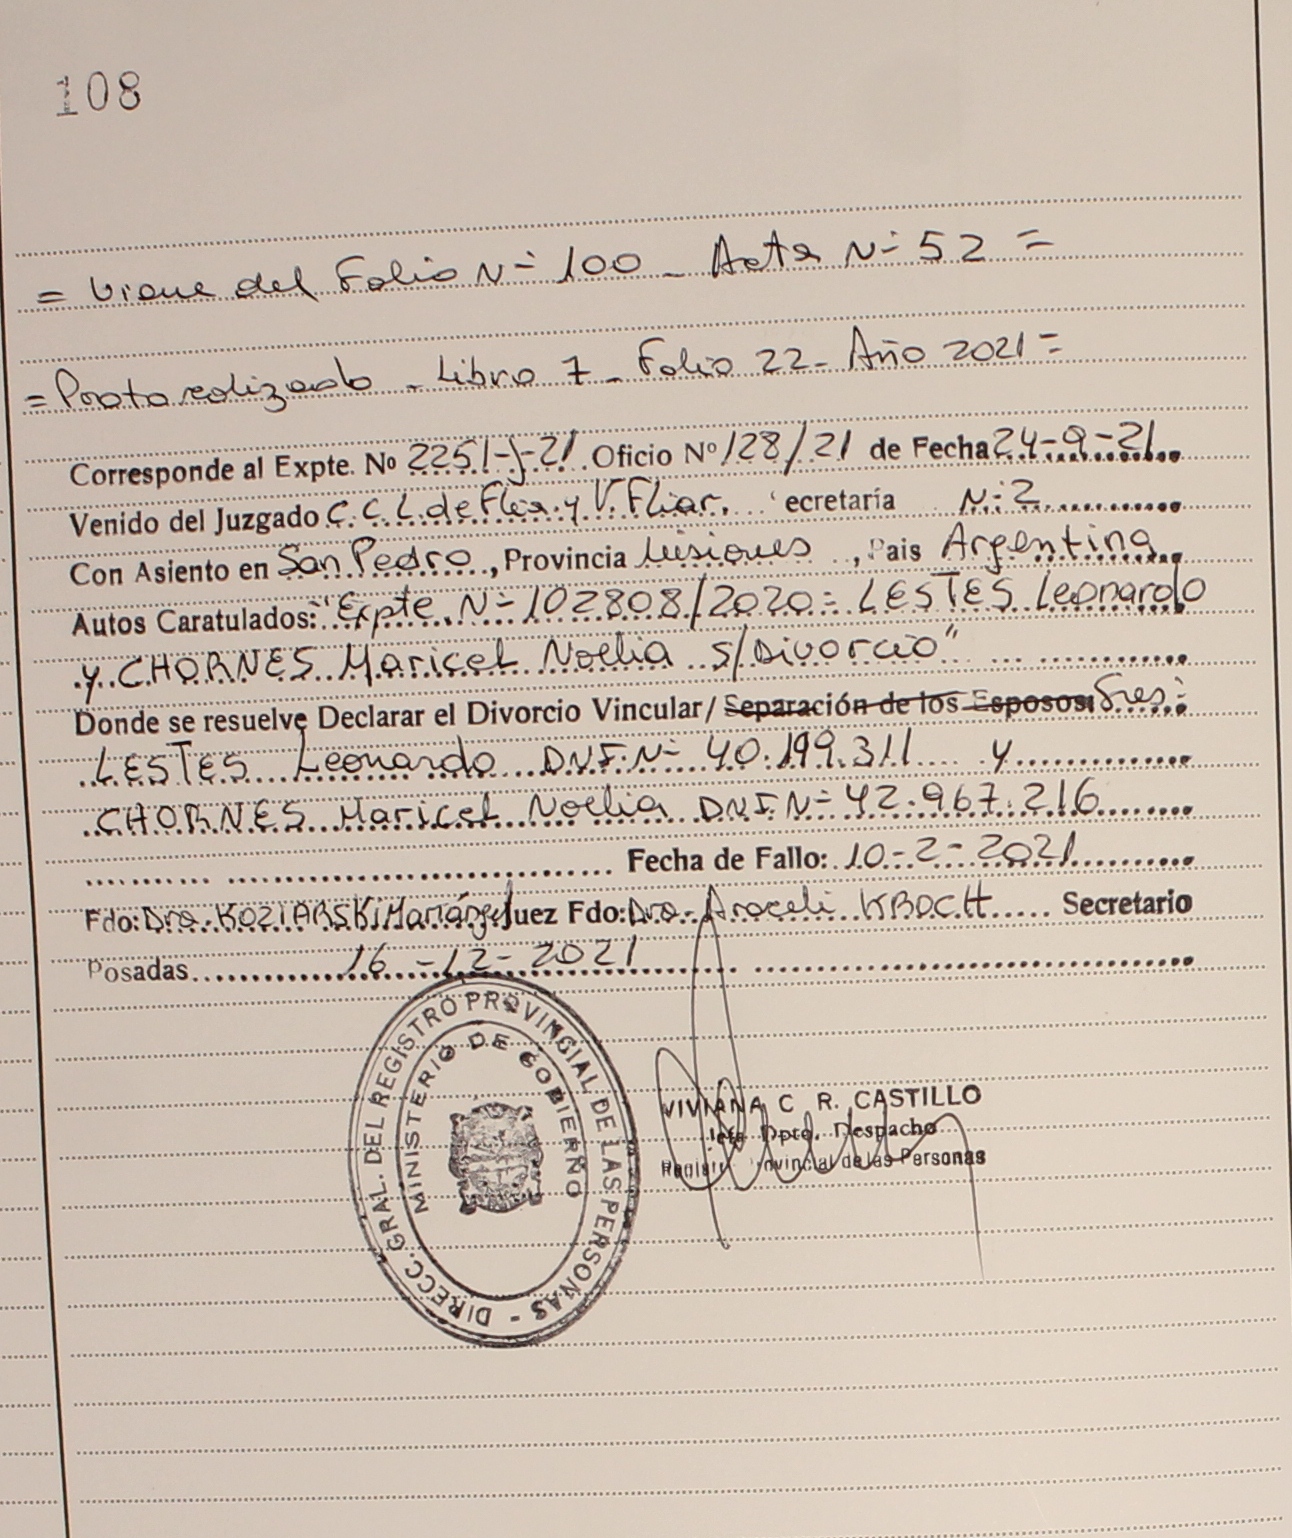 108
= Viene del Folio Nº 100 - Acta Nº 52 =
= Protocolizado - Libro 7 - Folio 22 - Año 2021 =
Corresponde al Expte. Nº 2251-J-21 Oficio Nº 128/21 de Fecha 24-9-21
Venido del Juzgado C. C. L. de Flia. y V. Fliar. ecretaría Nº 2
Con Asiento en San Pedro, Provincia Misiones, Pais Argentina
Autos Caratulados: "Expte. Nº 102808/2020 = LESTES Leonardo
y CHORNES Maricel Noelia s/Divorcio"
Donde se resuelve Declarar el Divorcio Vincular/ Separación de los Esposos: Sres:
LESTES Leonardo DNI. Nº 40.199.311 y
CHORNES Maricel Noelia DNI Nº 42.967.216
Fecha de Fallo: 10-2-2021
Fdo: Dra. KOZIARSKI Mariángel Juez Fdo: Dra. Araceli KROCH Secretario
Posadas 16-12-2021
DIRECC. GRAL. DEL REGISTRO PROVINCIAL DE LAS PERSONAS -
MINISTERIO DE GOBIERNO
VIVIANA C. R. CASTILLO
Jefa Dpto. Despacho
Registr rovincial de las Personas